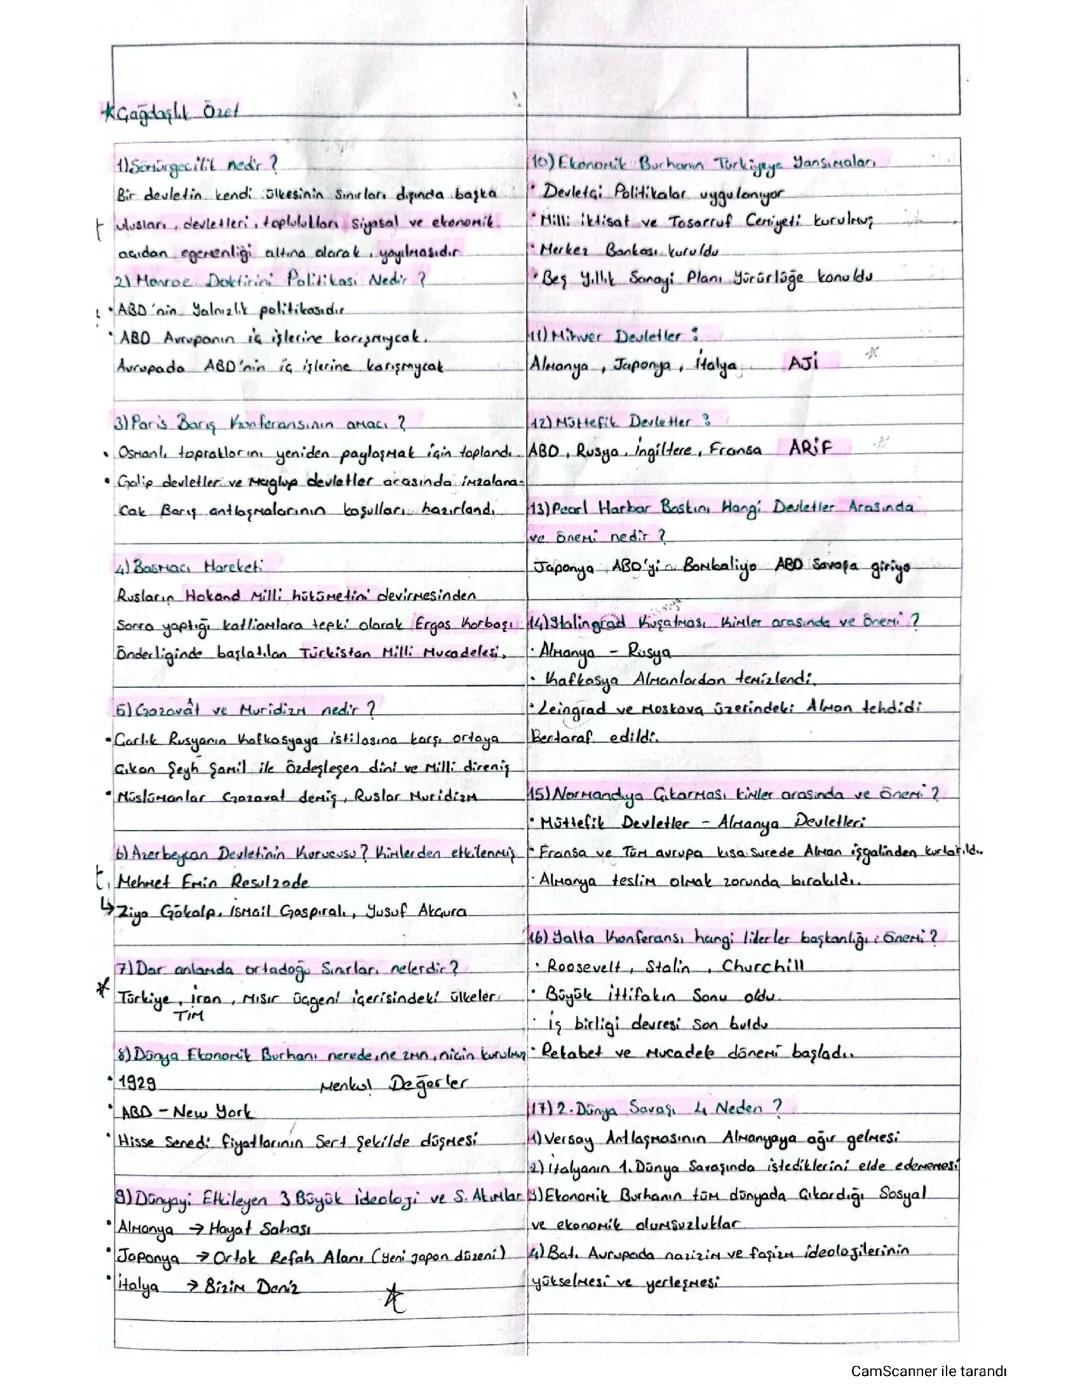 *Çağdaşlık Özet
1) Sömürgecilik nedir ?
Bir devletin kendi ülkesinin sınırları dışında başka
ulusları, devletleri, toplulukları siyasal ve ekonomik
açıdan egemenliği altına alarak, yayılmasıdır
2) Monroe Doktirini Politikası Nedir ?
! • ABD'nin Yalnızlık politikasıdır
• ABD Avrupanın iç işlerine karışmıycak.
Avrupada ABD'nin iç işlerine karışmycak
3) Paris Barış Konferansının amacı ?
• Osmanlı topraklarını yeniden paylaşmak için toplandı.
• Galip devletler ve Mağlup devletler arasında imzalana-
cak Barış antlaşmalarının koşulları hazırlandı
4) Basmacı Hareketi
Rusların Hokand Milli hükümetini devirmesinden
Sonra yaptığı katliamlara tepki olarak Ergaş Korbaşı
Önderliginde başlatılan Türkistan Milli Mucadelesi,
5) Gazavât ve Muridizm nedir ?
• Çarlık Rusyanın Kafkasyaya istilasına karşı ortaya
Çıkan Şeyh Şamil ile özdeşleşen dini ve Milli direniş
• Müslümanlar Gazavat demiş, Ruslar Muridizm
6) Azerbeycan Devletinin Kurucusu ? Kimlerden etkilenmiş
Mehmet Emin Resulzade
↳ Ziya Gökalp, ismail Gaspıralı, Yusuf Akçura
7) Dar anlamda ortadoğu Sınırları nelerdir ?
* Türkiye, iran, Mısır üçgeni içerisindeki ülkeler
TiM
8) Dünya Ekonomik Burhanı nerede, ne zmn, niçin kurulmuş
• 1929 Menkul Değerler
• ABD - New York
• Hisse Senedi fiyatlarının Sert Şekilde düşmesi
9) Dünyayı Etkileyen 3 Büyük ideoloji ve S. Akımlar
• Almanya → Hayat Sahası
• Japonya → Ortak Refah Alanı (yeni japon düzeni)
• italya → Bizim Deniz *
10) Ekonomik Burhanın Türkiyeye Yansımaları
• Devletçi Politikalar uygulanıyor
• Milli iktisat ve Tasarruf Cemiyeti kurulmuş
• Merkez Bankası kuruldu
• Beş Yıllık Sanayi Planı Yürürlüğe konuldu
11) Mihver Devletler :
Almanya, Japonya, italya AJi *
12) Müttefik Devletler :
ABD, Rusya, ingiltere, Fransa ARiF *
13) Pearl Harbor Baskını Hangi Devletler Arasında
ve önemi nedir ?
Japonya ABD'yi Bombaliyo ABD Savaşa giriyo
14) Stalingrad Kuşatması Kimler arasında ve Önemi ?
• Almanya - Rusya
• Kafkasya Almanlardan temizlendi.
• Leingrad ve Moskova üzerindeki Alman tehdidi
Bertaraf edildi.
15) Normandiya Çıkarması kimler arasında ve önemi ?
• Müttefik Devletler - Almanya Devletleri
• Fransa ve Tüm avrupa kısa surede Alman işgalinden kurtarıldı.
• Almanya teslim olmak zorunda bırakıldı.
16) Yalta Konferansı hangi liderler başkanlığı : önemi ?
• Roosevelt, Stalin, Churchill
• Büyük ittifakın Sonu oldu.
• iş birligi devresi son buldu
• Rekabet ve mucadele dönemi başladı.
17) 2. Dünya Savaşı 4 Neden ?
1) Versay Antlaşmasının Almanyaya ağır gelmesi
2) italyanın 1. Dünya Savaşında istediklerini elde edememesi
3) Ekonomik Burhanın tüm dünyada Çıkardığı Sosyal
ve ekonomik olumsuzluklar
4) Batı Avrupada nazizim ve faşizm ideolojilerinin
yükselmesi ve yerleşmesi
CamScanner ile tarandı